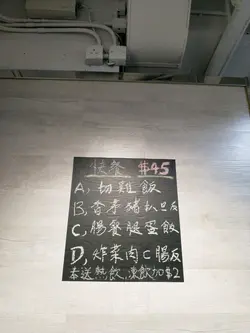 快餐 $45
A, 切雞飯
B, 香茅豬扒飯
C, 腸餐腿蛋飯
D, 炸菜肉C腸飯
本送熱飲,凍飲加$2